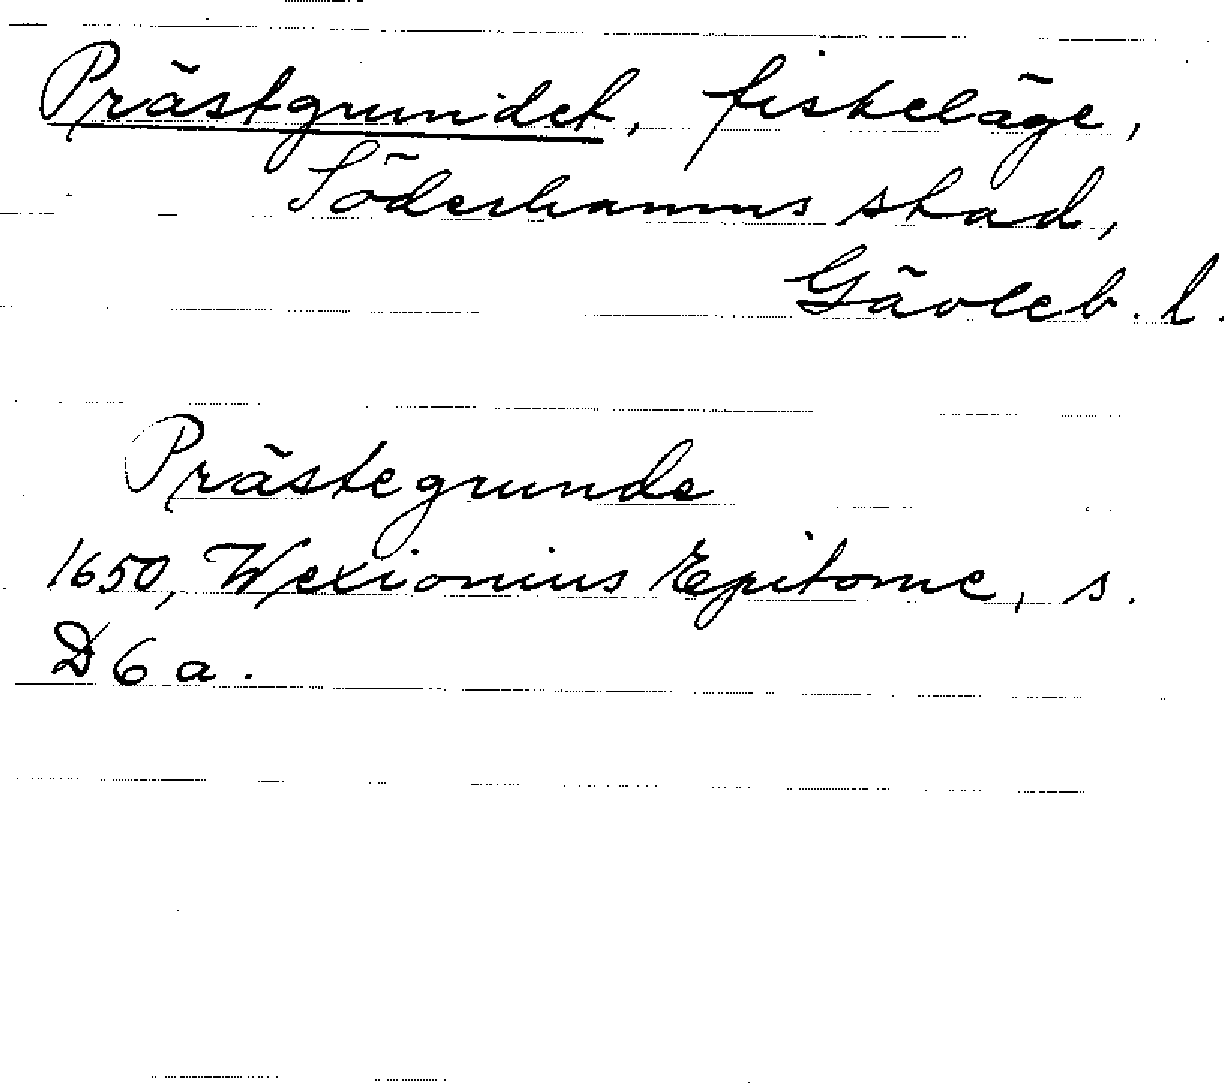 Prästgrundet, fiskeläge,
Söderhamns stad,
Gävleb. l.
Prästegrunde
1650, Wexionius Epitome, s.
D 6 a.